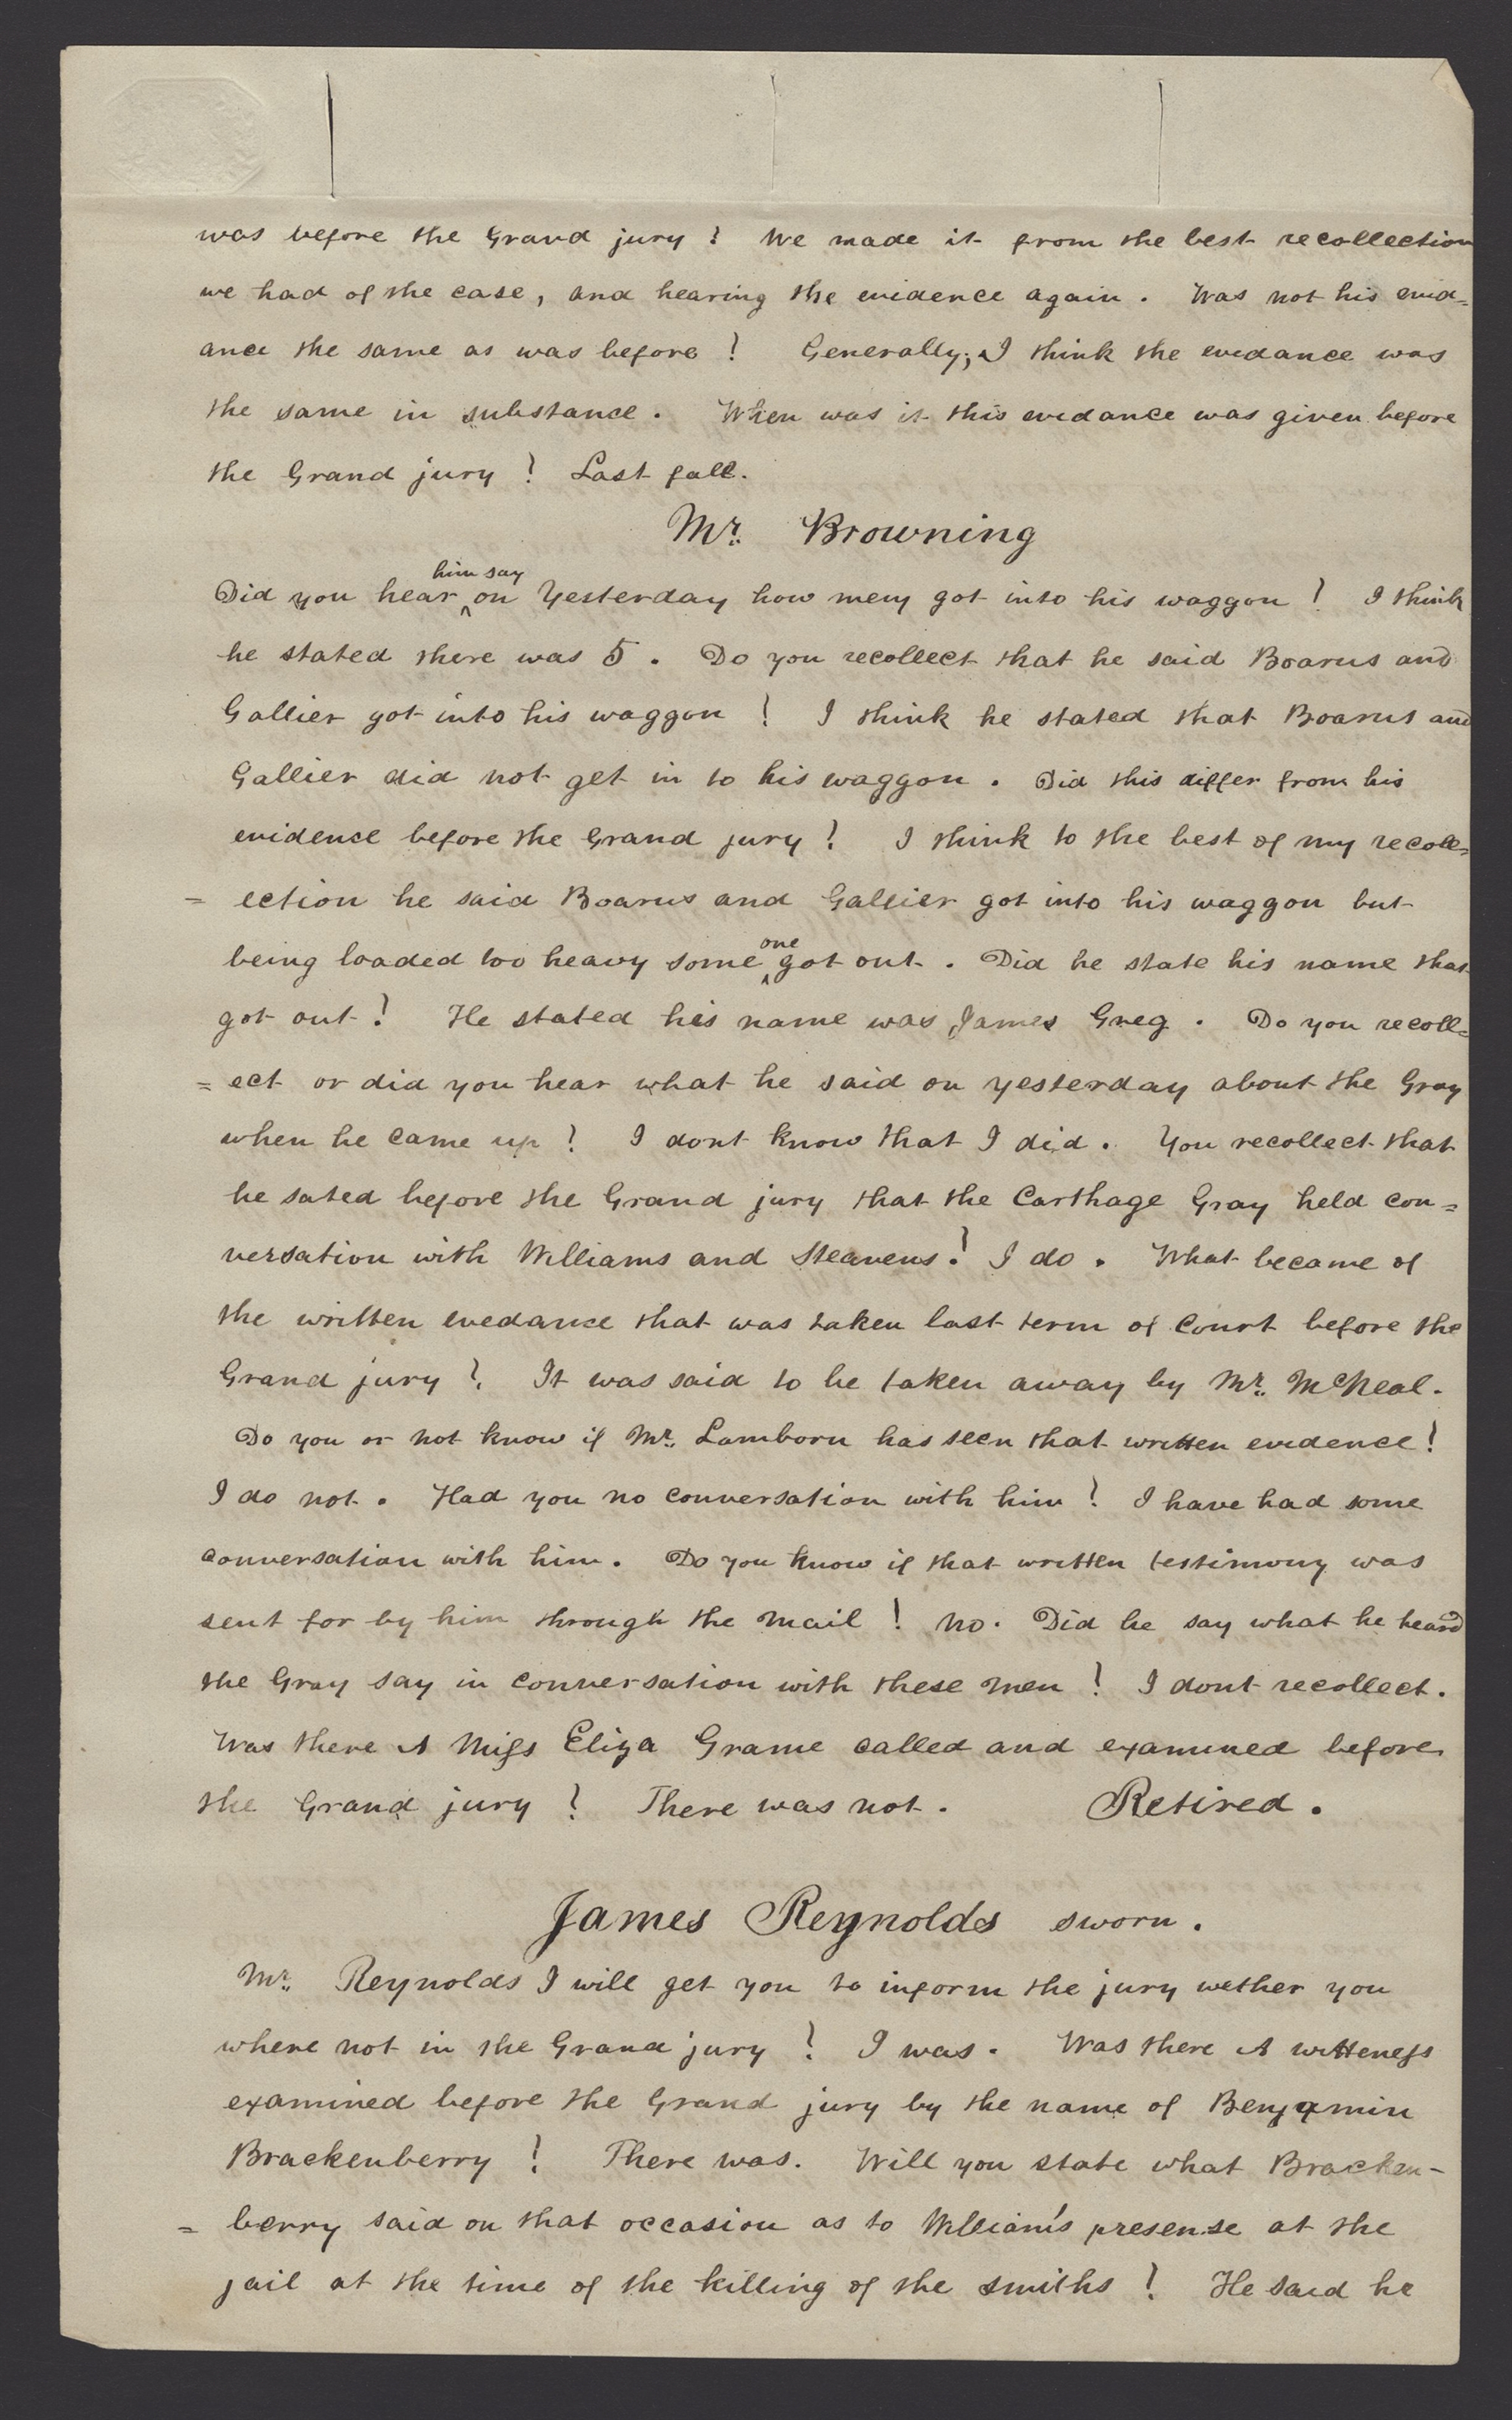 was before the Grand jury? We made it from the best recollection
we had of the case, and hearing the evidence again. Was not his evid=
ance the same as was before? Generally; I think the evedance was
the same in substance. When was it this evedance was given before
the Grand jury? Last fall.
Mr. Browning
him say
Did you hear ^ on Yesterday how meny got into his waggon? I think
he stated there was 5. Do you recollect that he said Boarus and
Gallier got into his waggon? I think he stated that Boarus and
Gallier did not get in to his waggon. Did this differ from his
evidence before the Grand jury? I think to the best of my recoll=
= ection he said Boarus and Gallier got into his waggon but
one
being loaded too heavy some ^ got out. Did he state his name that
got out? He stated his name was James Greg. Do you recoll=
= ect or did you hear what he said on yesterday about the Gray
when he came up? I dont know that I did. You recollect that
he sated before the Grand jury that the Carthage Gray held con=
versation with Williams and Steavens? I do. What became of
the written evedance that was taken last term of Court before the
Grand jury? It was said to be taken away by Mr. McNeal.
Do you or not know if Mr. Lamborn has seen that written evedence?
I do not. Had you no conversation with him? I have had some
conversation with him. Do you know if that written testimony was
sent for by him through the mail? no. Did he say what he heard
the Gray say in conversation with these men? I dont recollect.
Was there A Miss Eliza Grame called and examined before
the Grand jury? There was not. Retired.
James Reynolds sworn.
Mr. Reynolds I will get you to inform the jury wether you
where not in the Grand jury? I was. Was there A witteness
examined before the Grand jury by the name of Benjamin
Brackenberry? There was. Will you state what Bracken-
= berry said on that occasion as to William's presense at the
jail at the time of the killing of the smiths? He said he